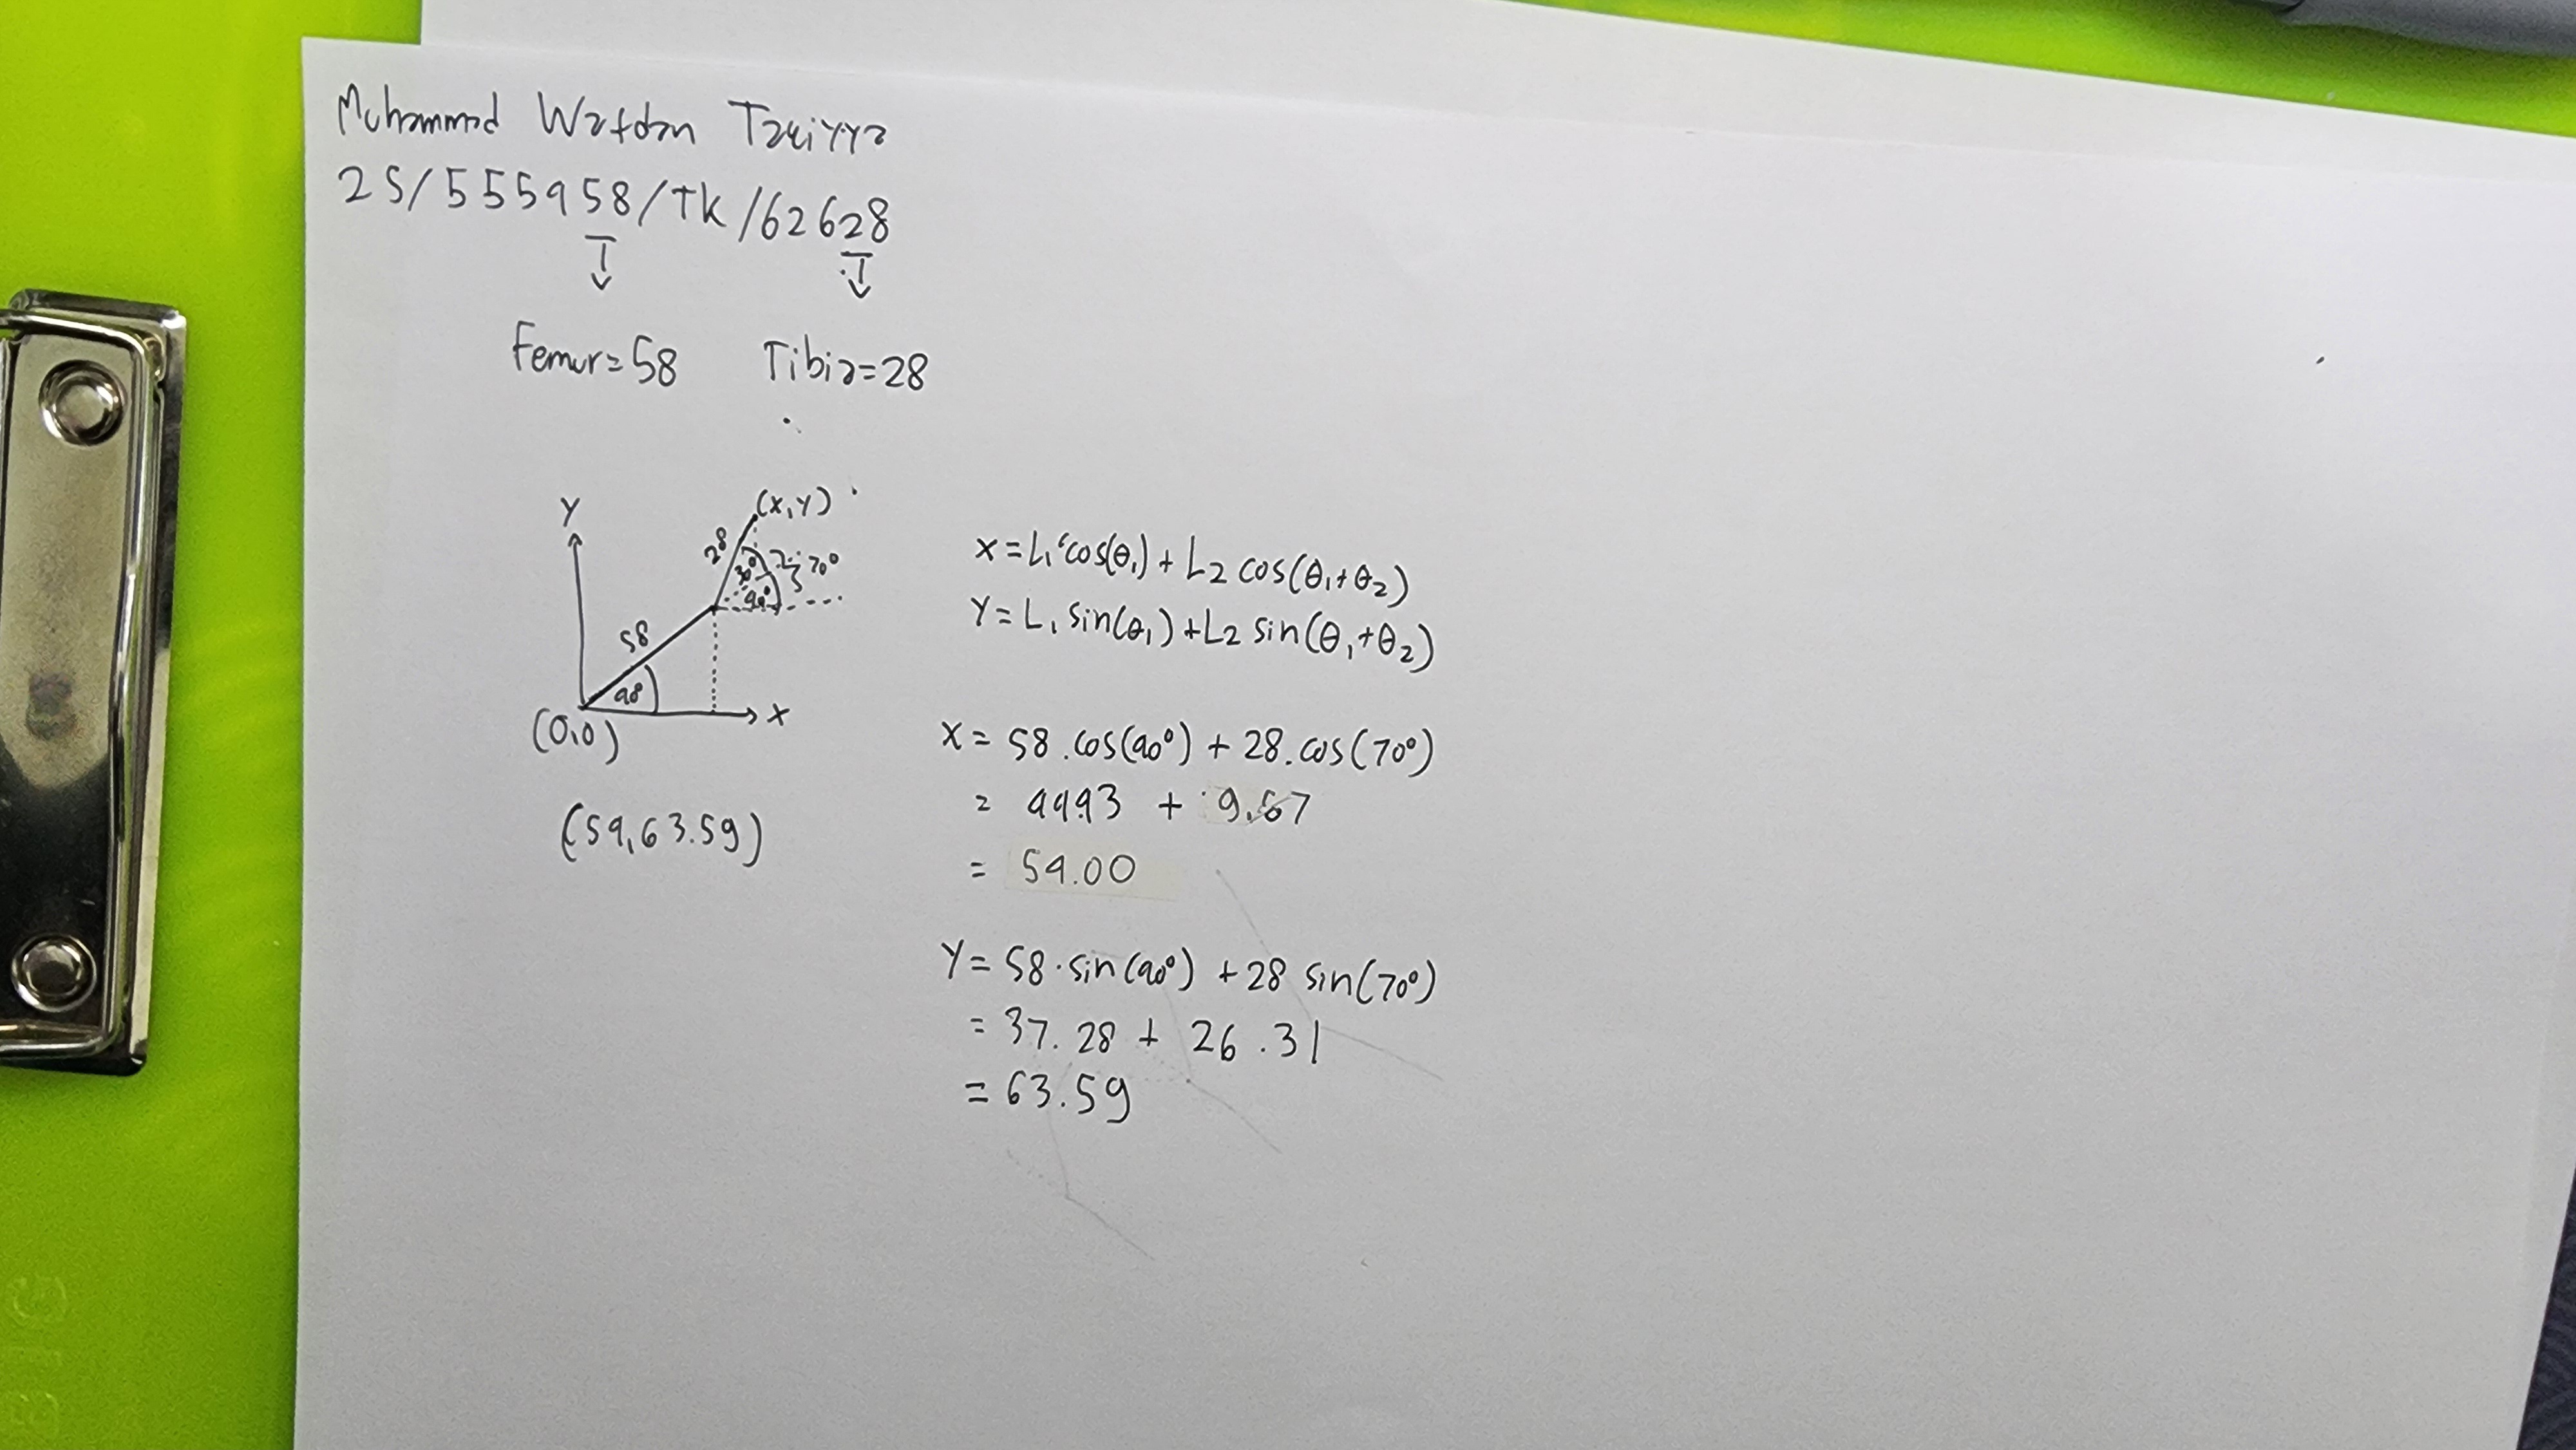 Muhammad Watdan Taqiyya
25/555958/TK/62628
Femur=58 Tibia=28
Y
(x,y)
28
30°
70°
40°
58
40°
X
(0,0)
(54,63.59)
x=L1 cos(θ1)+L2 cos(θ1+θ2)
Y=L1 sin(θ1)+L2 sin(θ1+θ2)
X= 58.cos(40°)+28.cos(70°)
= 44.43 + 9.57
= 54.00
Y= 58.sin(40°)+28 sin(70°)
= 37.28 + 26.31
= 63.59